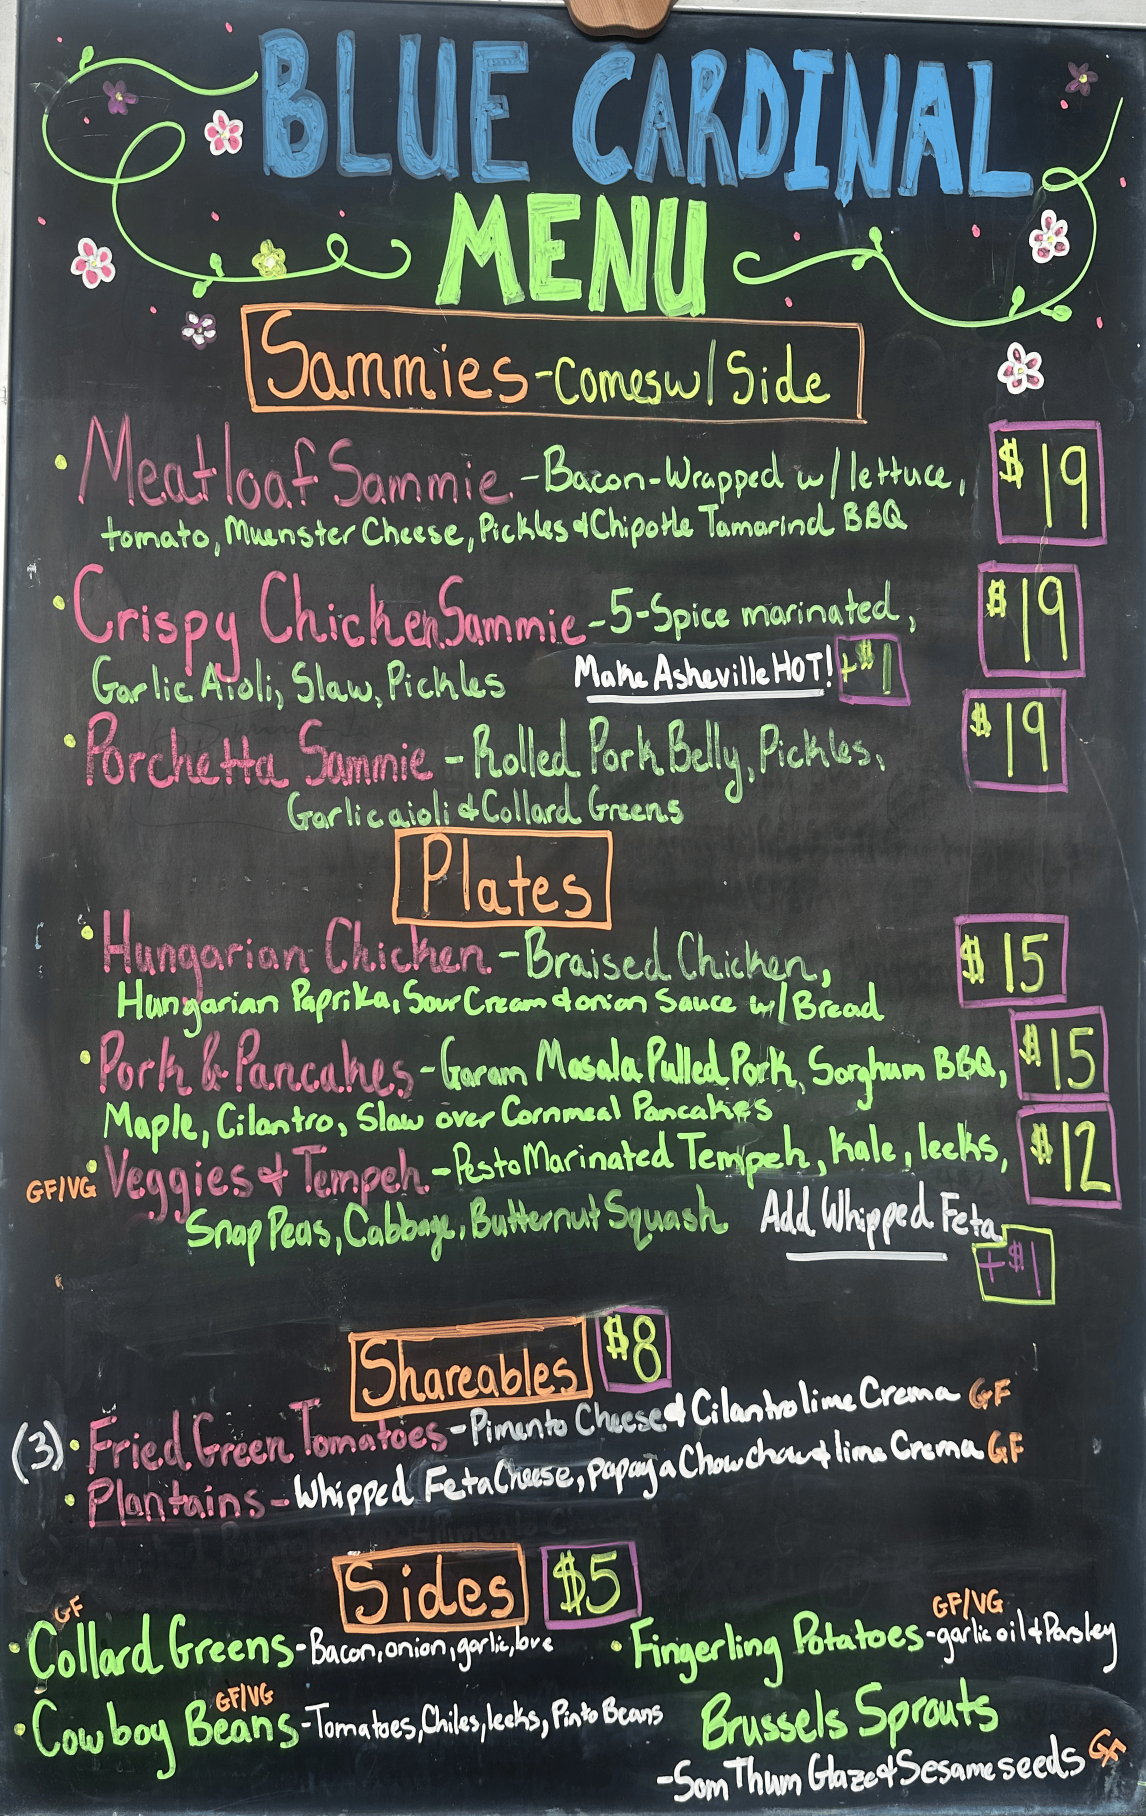 BLUE CARDINAL
MENU
Sammies - Comes w/ Side
• Meatloaf Sammie - Bacon-Wrapped w/ lettuce, $19
tomato, Muenster Cheese, Pickles & Chipotle Tamarind BBQ
• Crispy Chicken Sammie - 5-Spice marinated, $19
Garlic Aioli, Slaw, Pickles Make Asheville HOT! +$1
• Porchetta Sammie - Rolled Pork Belly, Pickles, $19
Garlic aioli & Collard Greens
Plates
• Hungarian Chicken - Braised Chicken, $15
Hungarian Paprika, Sour Cream & onion Sauce w/ Bread
• Pork & Pancakes - Garam Masala Pulled Pork, Sorghum BBQ, $15
Maple, Cilantro, Slaw over Cornmeal Pancakes
GF/VG • Veggies & Tempeh - Pesto Marinated Tempeh, Kale, leeks, $12
Snap Peas, Cabbage, Butternut Squash Add Whipped Feta
+$1
Shareables $8
(3) • Fried Green Tomatoes - Pimento Cheese & Cilantro lime Crema GF
• Plantains - Whipped Feta Cheese, papaya Chow chow & lime Crema GF
Sides $5
GF
• Collard Greens - Bacon, onion, garlic, love
GF/VG
• Cowboy Beans - Tomatoes, Chiles, leeks, Pinto Beans
GF/VG
• Fingerling Potatoes - garlic oil & Parsley
Brussels Sprouts
- Som Thum Glaze & Sesame seeds GF